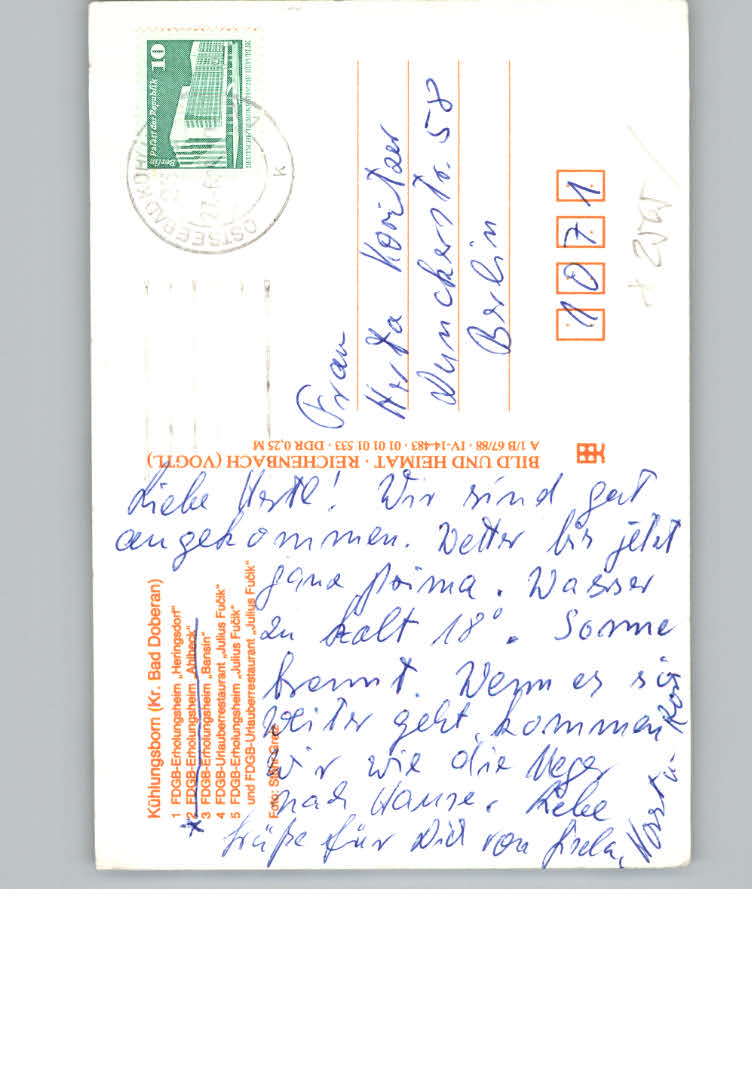 Liebe Hertl! Wir sind gut
angekommen. Wetter bis jetzt
ganz prima. Wasser
zu kalt 18°. Sonne
brennt. Wenn es so
weiter geht, kommen
wir wie die Neger
nach Hause. Liebe
Grüße für Dich von Gisela,
Horst u.
Kühlungsborn (Kr. Bad Doberan)
1 FDGB-Erholungsheim „Heringsdorf"
2 FDGB-Erholungsheim „Ahlbeck"
3 FDGB-Erholungsheim „Bansin"
4 FDGB-Urlauberrestaurant „Julius Fučik"
5 FDGB-Erholungsheim „Julius Fučik"
und FDGB-Urlauberrestaurant „Julius Fučik"
Foto:
BILD UND HEIMAT · REICHENBACH (VOGTL)
A 1/B 67/88 · IV-14-483 · 01 01 01 533 · DDR 0,25 M
Frau
Herta Koritzer
Dunckerstr. 58
Berlin
1071
10
Berlin Palast der Republik
OSTSEEBAD KÜH
k